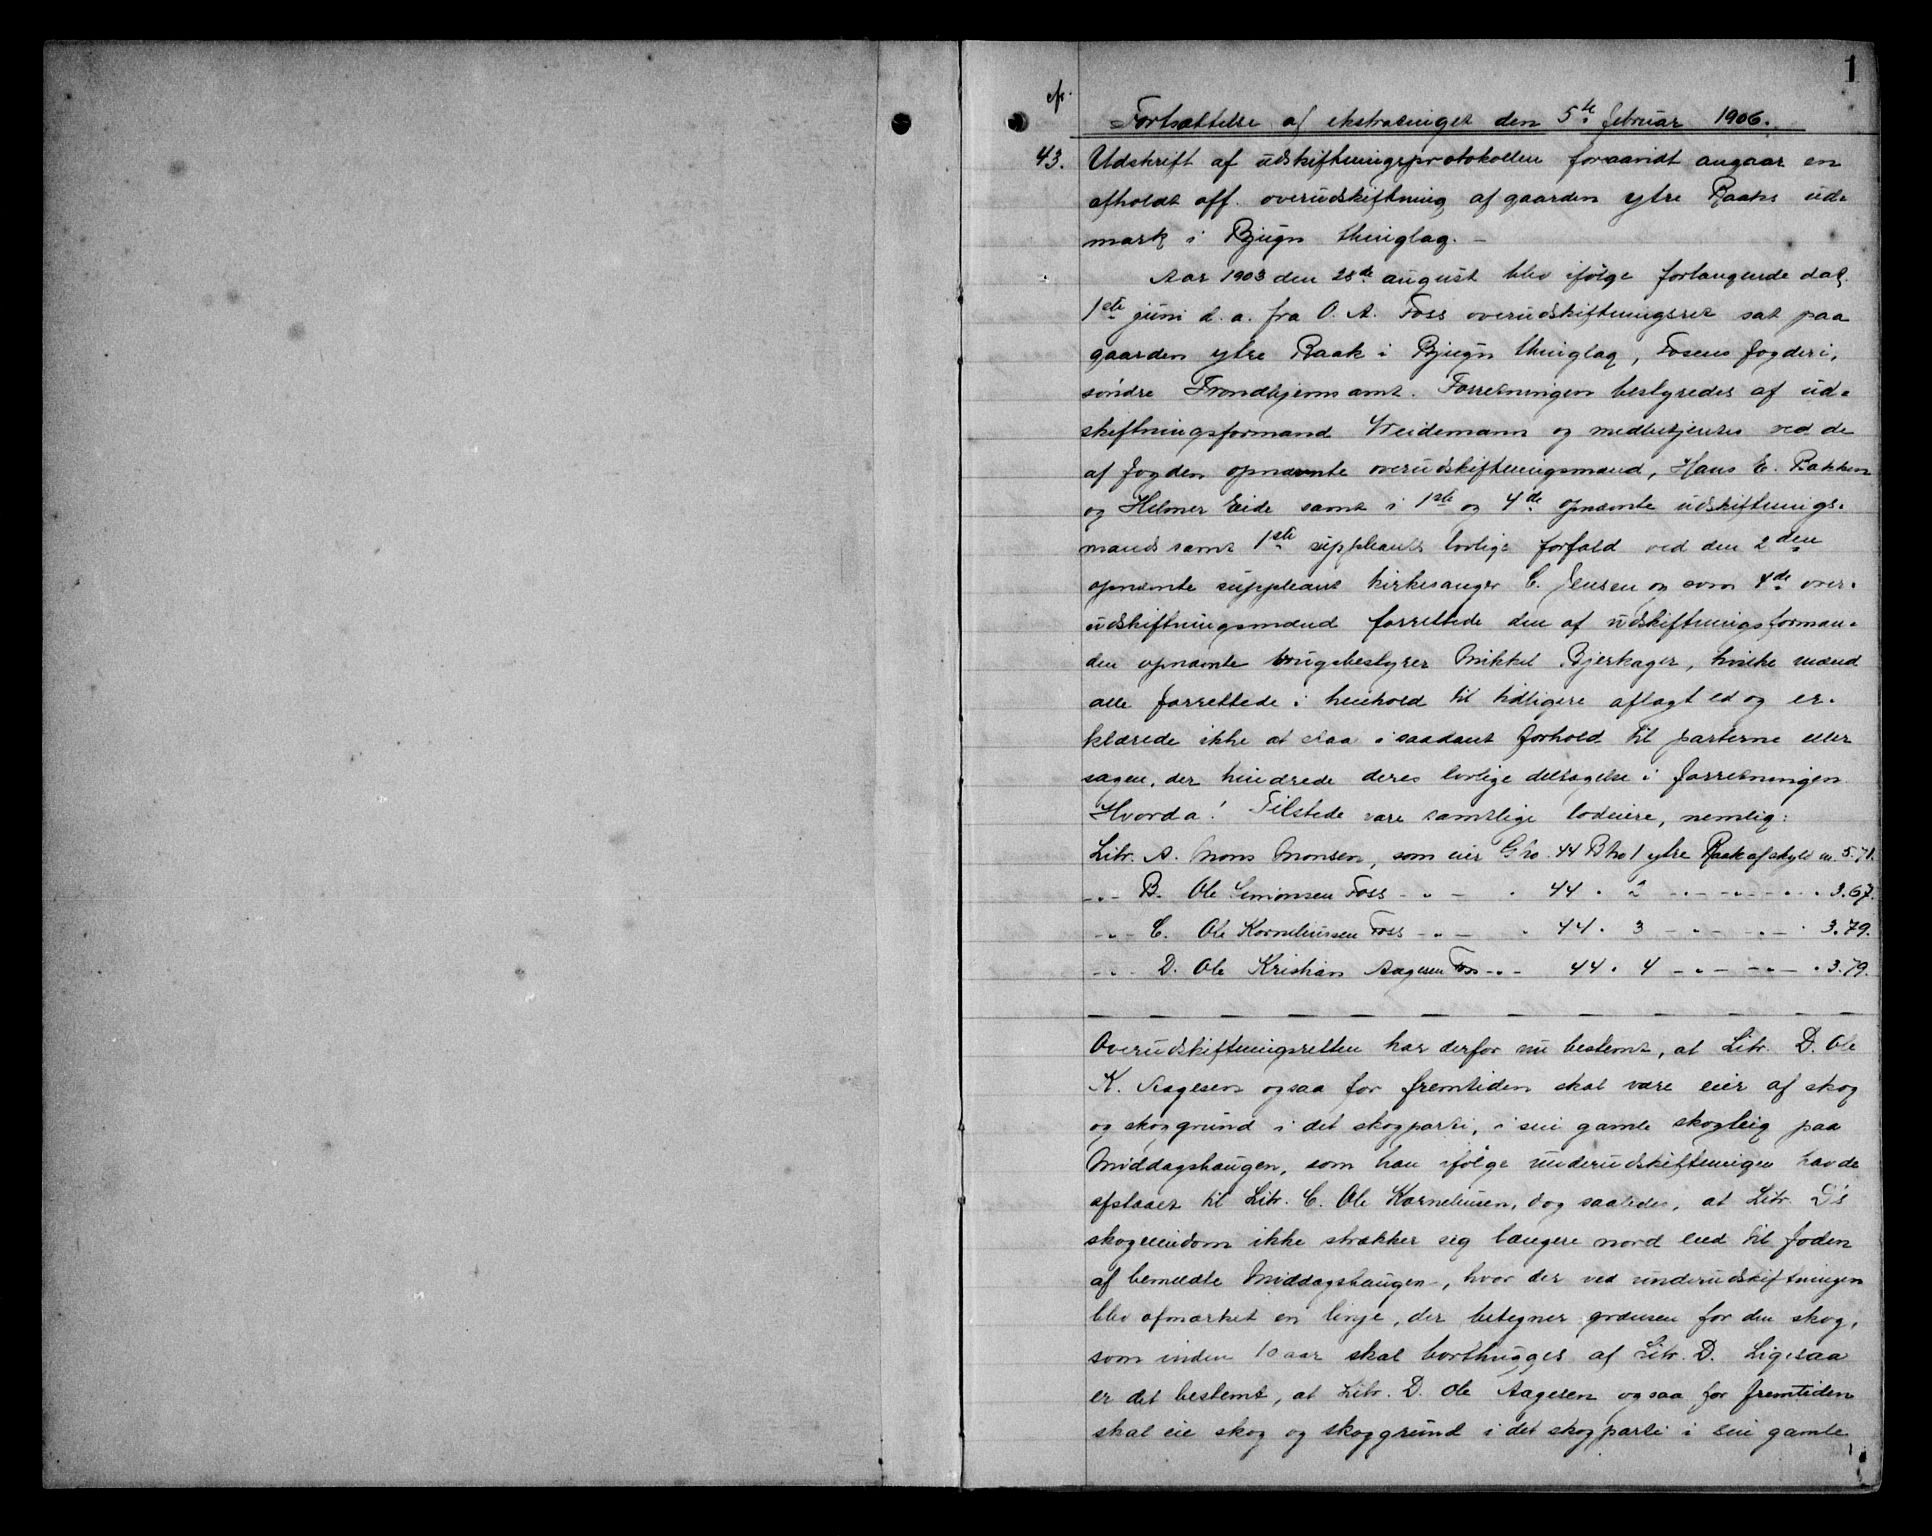 1
cfr.
Fortsættelse af ekstraringet den 5te februar 1906.
43. Udskrift af udskiftningsprotokollen forsaavidt angaar en
afholdt off. overudskiftning af gaarden ytre Raaks ud-
mark i Bjugn thinglag. –
Aar 1903 den 28de august blev ifølge forlangende dat.
1ste juni d. a. fra O. A. Foss overudskiftningsret sat paa
gaarden ytre Raak i Bjugn thinglag, Fosens fogderi,
søndre Trondhjems amt. Forretningen bestyredes af ud-
skiftningsformand Weidemann og medbetjentes ved de
af fogden opnævnte overudskiftningsmænd, Hans E. Bakken
og Helmer Eide samt i 1ste og 4de opnævnte udskiftnings-
mænds samt 1ste suppleants lovlige forfald ved den 2den
opnævnte suppleant kirkesanger C. Jensen og som 4de over-
udskiftningsmænd forrettede den af udskiftningsforman-
den opnævnte brugsbestyrer Mikkel Bjerkager, hvilke mænd
alle forrettede i henhold til tidligere aflagt ed og er-
klærede ikke at staa i saadant forhold til parterne eller
sagen, der hindrede deres lovlige deltagelse i forretningen
Hvorda! Tilstede vare samtlige lodeiere, nemlig:
Litr. A. Mons Monsen, som eier Gno. 44 Bno 1 ytre Raak af skyld m. 5.71.
-„- B. Ole Simonsen Foss -„- - „ 44 „ 2 -„- -„- „ 3.67.
-„- C. Ole Korneliussen Foss -„- - „ 44 „ 3 -„- -„- „ 3.79.
-„- D. Ole Kristian Aagesen Foss -„- 44 „ 4 -„- -„- „ 3.79.
— — — — — — — — — — — —
Overudskiftningsretten har derfor nu bestemt, at Litr. D. Ole
K. Aagesen ogsaa for fremtiden skal være eier af skog
og skoggrund i det skogparti, i sin gamle skogteig paa
Middagshaugen, som han ifølge underudskiftningen havde
afstaaet til Litr. C. Ole Korneliusen, dog saaledes, at Litr. D's
skogeiendom ikke strækker sig længere nord end til foden
af bemeldte Middagshaugen, hvor der ved underudskiftningen
blev afmærket en linje, der betegner grænsen for den skog,
som inden 10 aar skal borthugges af Litr. D. Ligesaa
er det bestemt, at Litr. D. Ole Aagesen ogsaa for fremtiden
skal eie skog og skoggrund i det skogparti i sin gamle